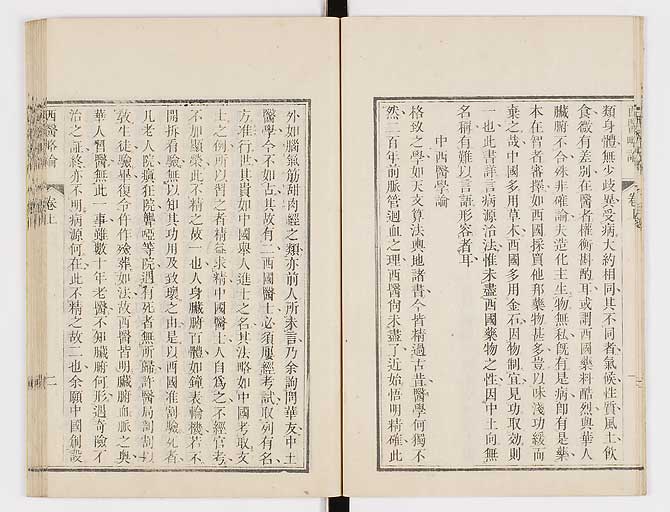 類身體無少歧異受病大約相同其不同者氣候性質風土飲
食微有差別在醫者權衡斟酌耳或謂西國藥料酷烈與華人
臟腑不合殊非確論夫造化主生物無私旣有是病卽有是藥
本在智者審擇如西國採買他邦藥物甚多豈以味淺功緩而
棄之哉中國多用草木西國多用金石因物制宜見功取效則
一也此書詳言病源治法惟未盡西國藥物之性因中土向無
名稱有難以言語形容者耳
中西醫學論
格致之學如天文算法輿地諸書今皆精過古昔醫學何獨不
然二百年前脈管廻血之理西醫尚未盡了近始悟明精確此
西醫略論
卷上
二
外如腦氣筋甜肉經之類亦前人所未言乃余詢問華友中土
醫學今不如古其故有二西國醫士必須屢經考試取列有名
方准行世其貴如中國舉人進士之名其法略如中國考取文
士之例所以習之者精益求精中國醫士人自爲之不經官考
不加顯榮此不精之故一也人身臟腑百體如鐘表輪機若不
開拆看驗無以知其功用及致壞之由是以西國准割驗死者
凡老人院癲狂院聾啞等院遇有死者無所歸許醫局剖割以
敎生徒驗畢復令仵作殮葬如法故西醫皆明臟腑血脈之奧
華人習醫無此一事雖數十年老醫不知臟腑何形遇奇險不
治之証終亦不明病源何在此不精之故二也余願中國創設